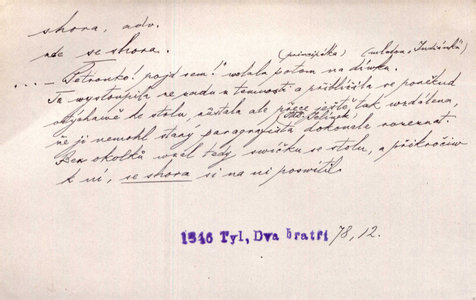 shora, adv.
ode se shora.
(principálka) (mlatou „Indiánků“)
... — „Petronko! pojď sem!“ volala potom na dívku.
Ta vystoupila ze zadu a temnosti a přiblížila se poněkud
ostýchavě ke stolu, zůstala ale přece ještě tak vzdálena,
(Jilo Jelínek)
že ji nemohl starý paragrafista dokonale rozeznat.
Bez okolků vzal tedy svíčku se stolu, a přikročiv
k ní, se shora si na ni posvítil.
1846 Tyl, Dva bratři 78, 12.